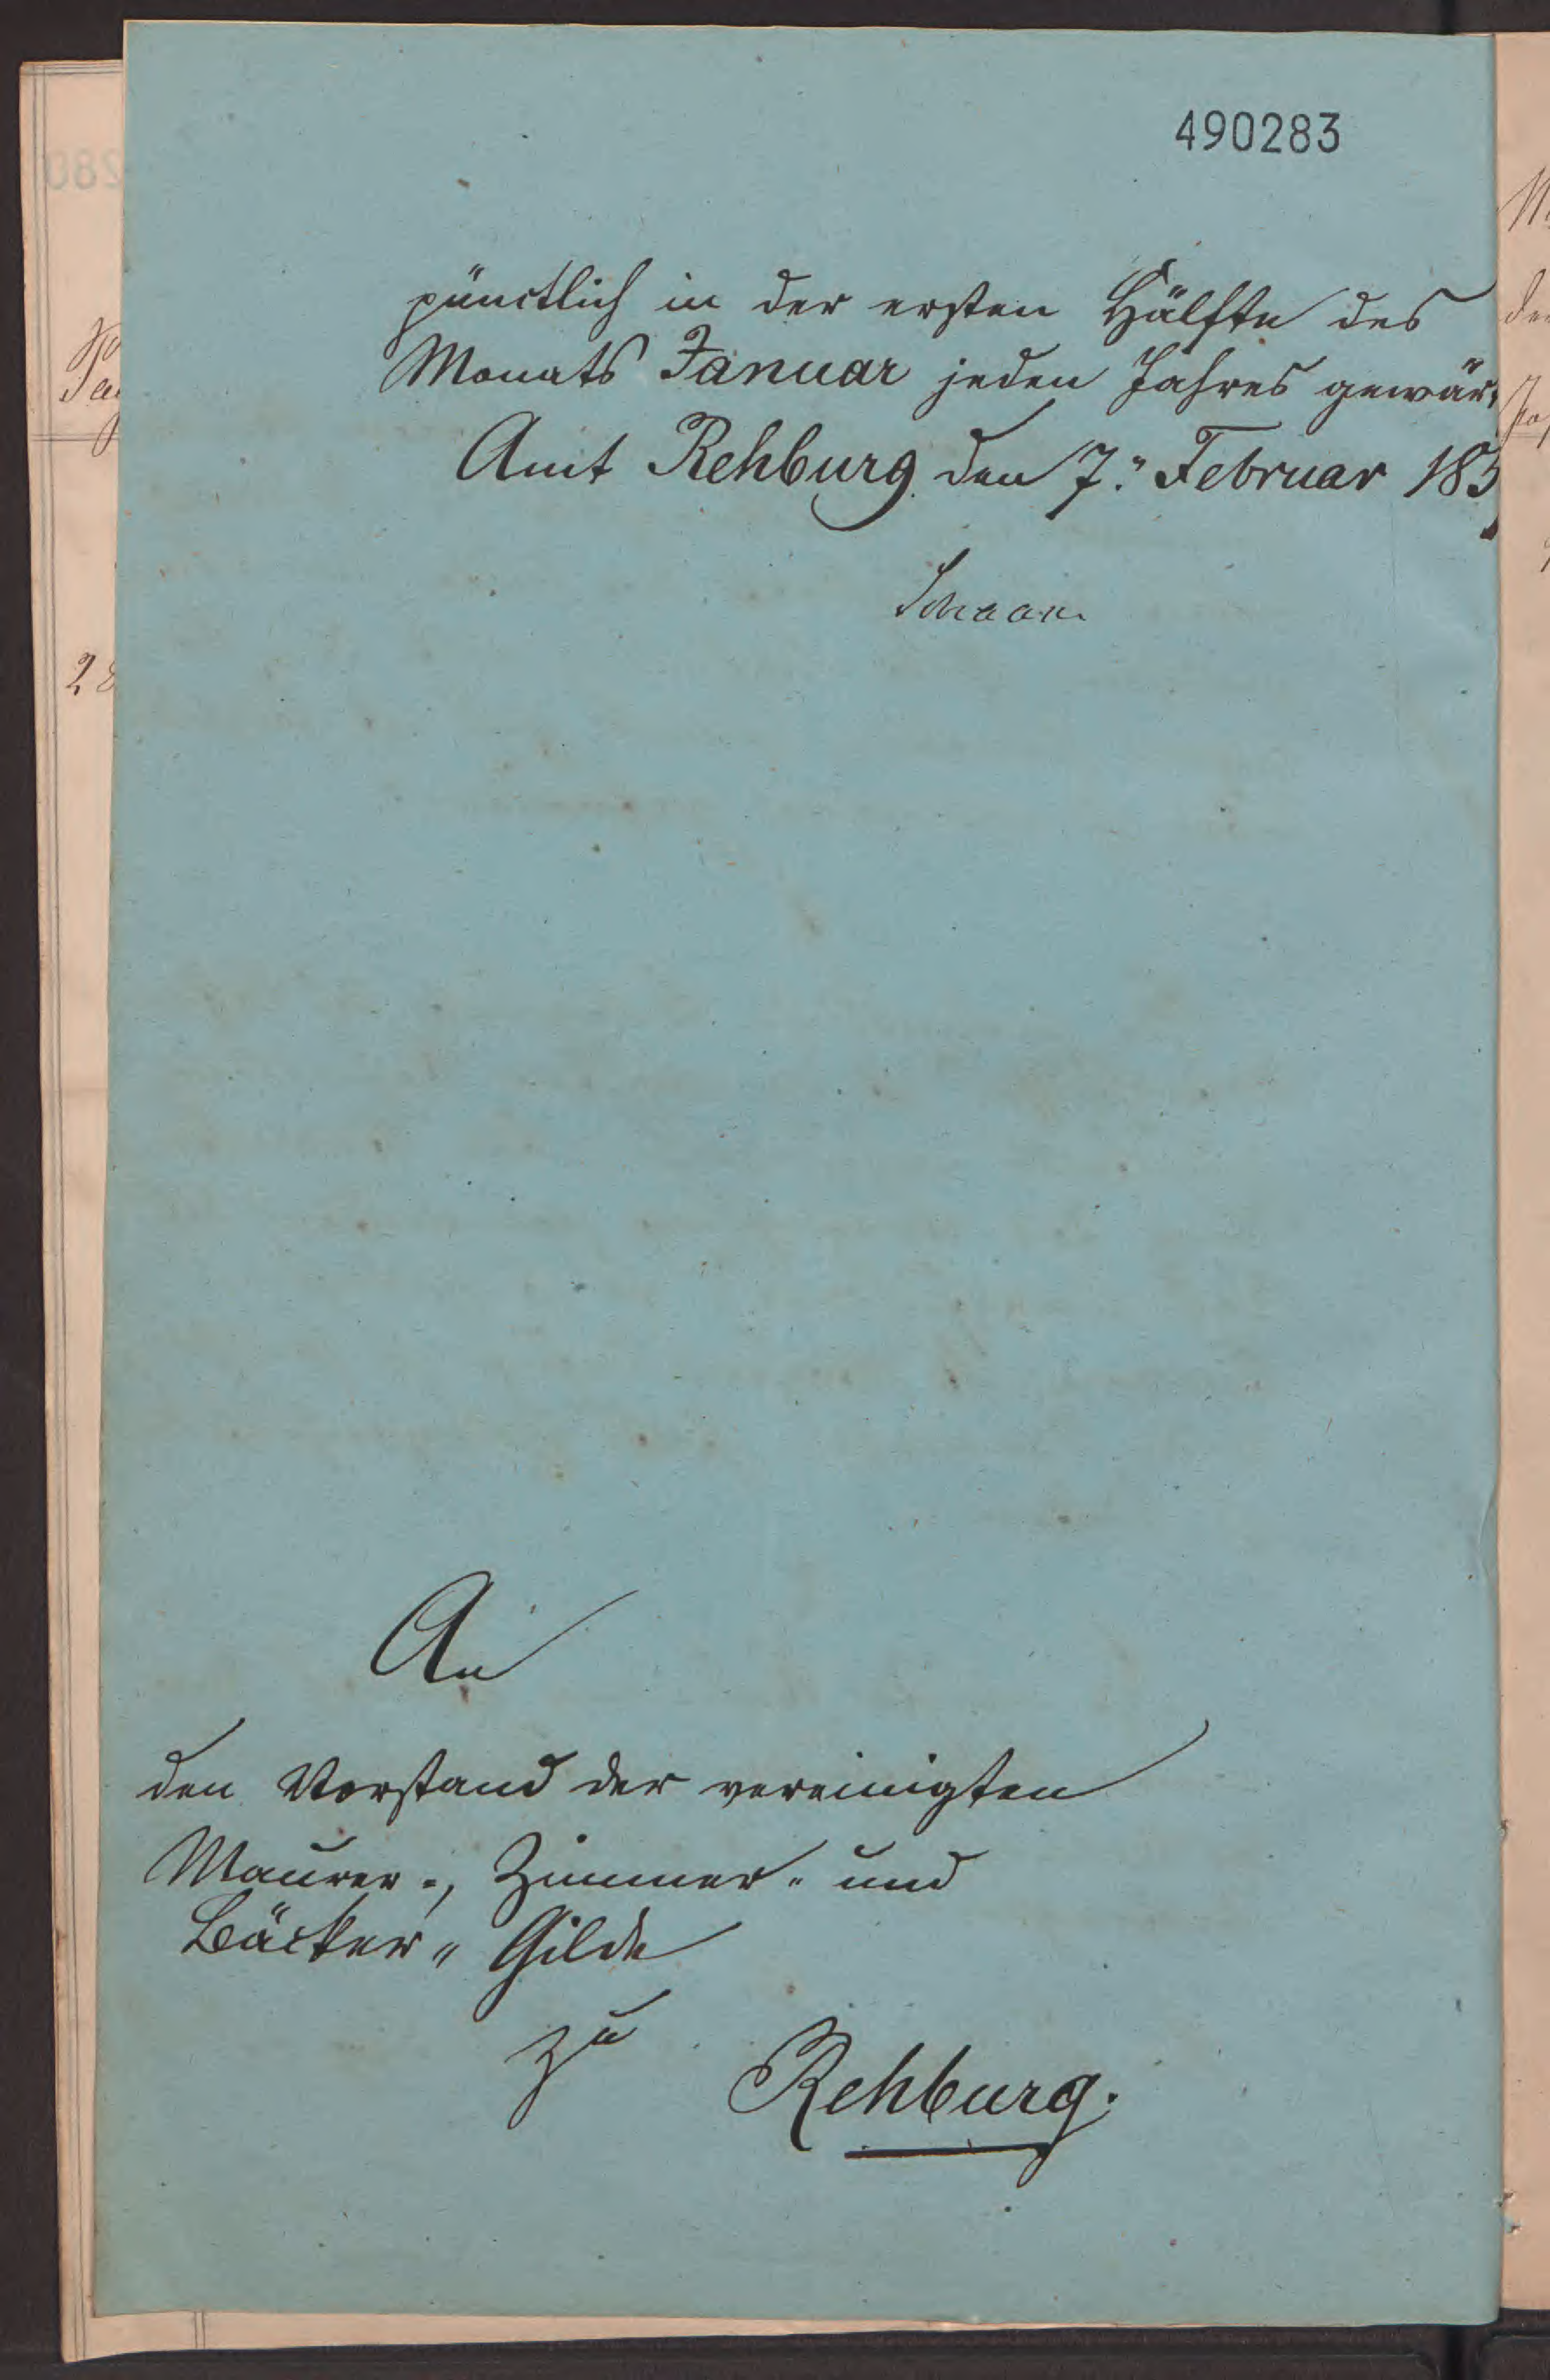 490283
pünctlich in der ersten Hälfte des
Monats Januar jeden Jahres gewär-
Amt Rehburg den 7. Februar 185
Schaar
An
den Vorstand der vereinigten
Maurer-, Zimmer- und
Bäcker- Gilde
zu
Rehburg.